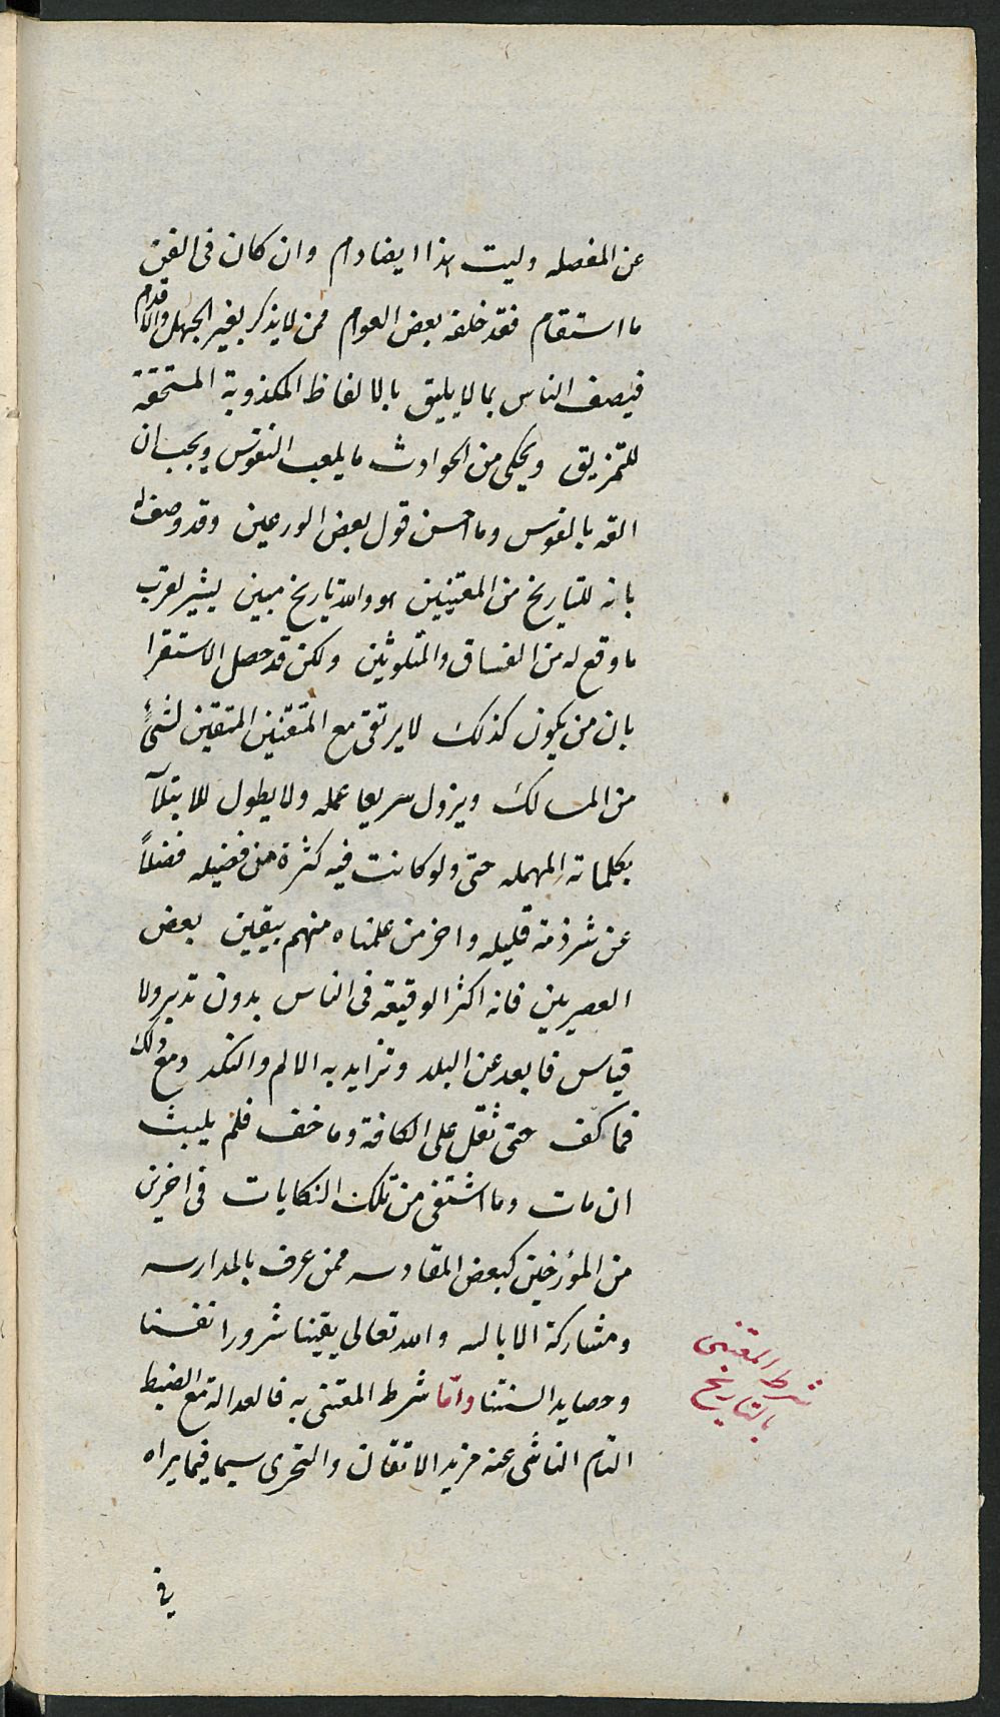 عن المفصله وليت هذا ايضا دام وان كان فى الفن
ما استقام فقد خلفه بعض العوام ممن لا يذكر بغير الجهل والاقدام
فيصف الناس بما لا يليق بالالفاظ المكذوبة المستحقة
للتمزيق ويحكى من الحوادث ما يلعب النفوس ويجب ان
القه بالفوس وما احسن قول بعض الورعين وقد وصف له
بانه للتاريخ من المعتنين هو والله تاريخ مبين يشير لقرب
ما وقع له من الفساق والمتلوثين ولكن قد حصل الاستقرا
بان من يكون كذلك لا يرتقى مع المتقنين المتقين لشئ
من المسالك ويزول سريعا عمله ولا يطول للابتلآ
بكلماته المهمله حتى ولو كانت فيه كثرة من فضيله فضلاً
عن شرذمة قليله واخر من علمناه منهم بيقين بعض
العصريين فانه اكثر الوقيعة فى الناس بدون تدبر ولا
قياس فابعد عن البلد وتزايد به الالم والنكد ومع ذلك
فما كف حتى ثقل على الكافة وما خف فلم يلبث
ان مات وما اشتفى من تلك النكايات فى اخرين
من المؤرخين كبعض المقادسه ممن عرف بالمدارسه
ومشاركة الابالسه والله تعالى يقينا شرور انفسنا
وحصايد السنتنا وامّا شرط المعتنى به فالعدالة مع الضبط
التام الناشى عنه مزيد الاتقان والتحرى سيما فيما يراه
شرط المعتنى
بالتاريخ
فى